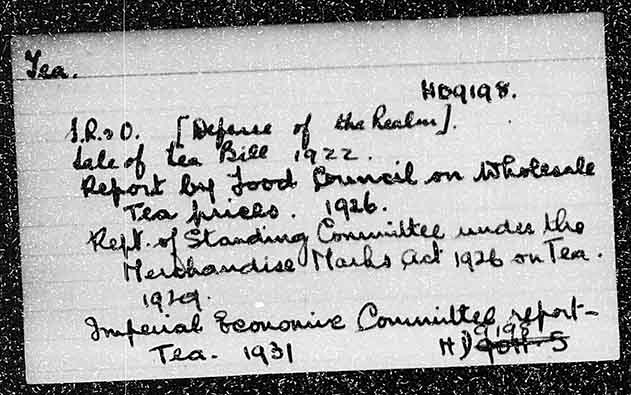 Tea.
HD9198.
S.R.& O. [Defense of the Realm].
Sale of Tea Bill 1922.
Report by Food Council on Wholesale
Tea prices. 1926.
Rept. of Standing Committee under the
Merchandise Marks Act 1926 on Tea.
1929.
Imperial Economic Committee report-
Tea. 1931 HD 9198